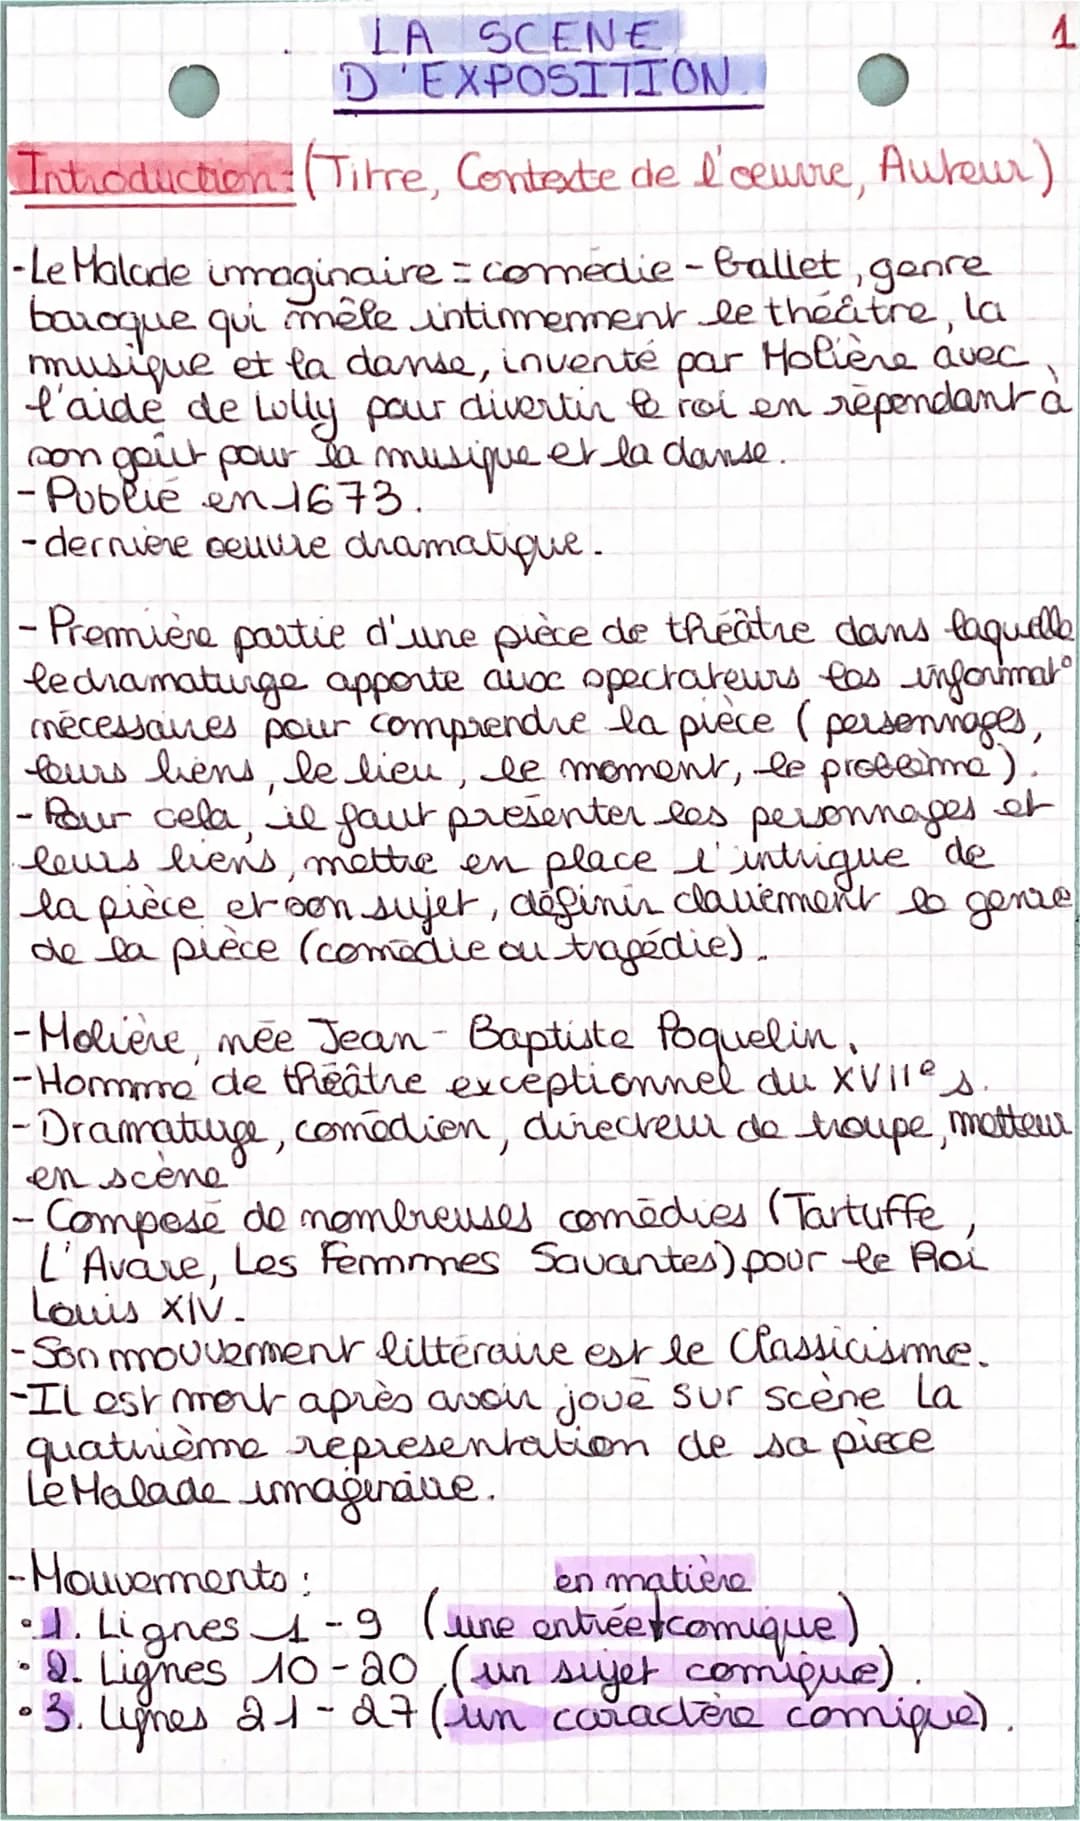 LA SCENE
D'EXPOSITION.
1
Introduction : (Titre, Contexte de l'oeuvre, Auteur)
- Le Malade imaginaire = comédie - Ballet, genre
baroque qui mêle intimement le théâtre, la
musique et la danse, inventé par Molière avec
l'aide de Lully pour divertir le roi en répendant à
son goût pour la musique et la danse.
- Publié en 1673.
- dernière oeuvre dramatique.
- Première partie d'une pièce de théâtre dans laquelle
le dramaturge apporte aux spectateurs les informat°
nécessaires pour comprendre la pièce (personnages,
leurs liens, le lieu, le moment, le problème).
- Pour cela, il faut présenter les personnages et
leurs liens, mettre en place l'intrigue de
la pièce et son sujet, définir clairement le genre
de la pièce (comédie ou tragédie).
- Molière, née Jean - Baptiste Poquelin.
- Homme de théâtre exceptionnel du XVIIe s.
- Dramaturge, comédien, directeur de troupe, metteur
en scène
- Composé de nombreuses comédies (Tartuffe,
L'Avare, Les Femmes Savantes) pour le Roi
Louis XIV.
- Son mouvement littéraire est le Classicisme.
- Il est mort après avoir joué sur scène la
quatrième représentation de sa pièce
Le Malade imaginaire.
- Mouvements :
en matière
• 1. Lignes 1 - 9 (une entrée comique)
• 2. Lignes 10 - 20 (un sujet comique).
• 3. Lignes 21 - 27 (un caractère comique).